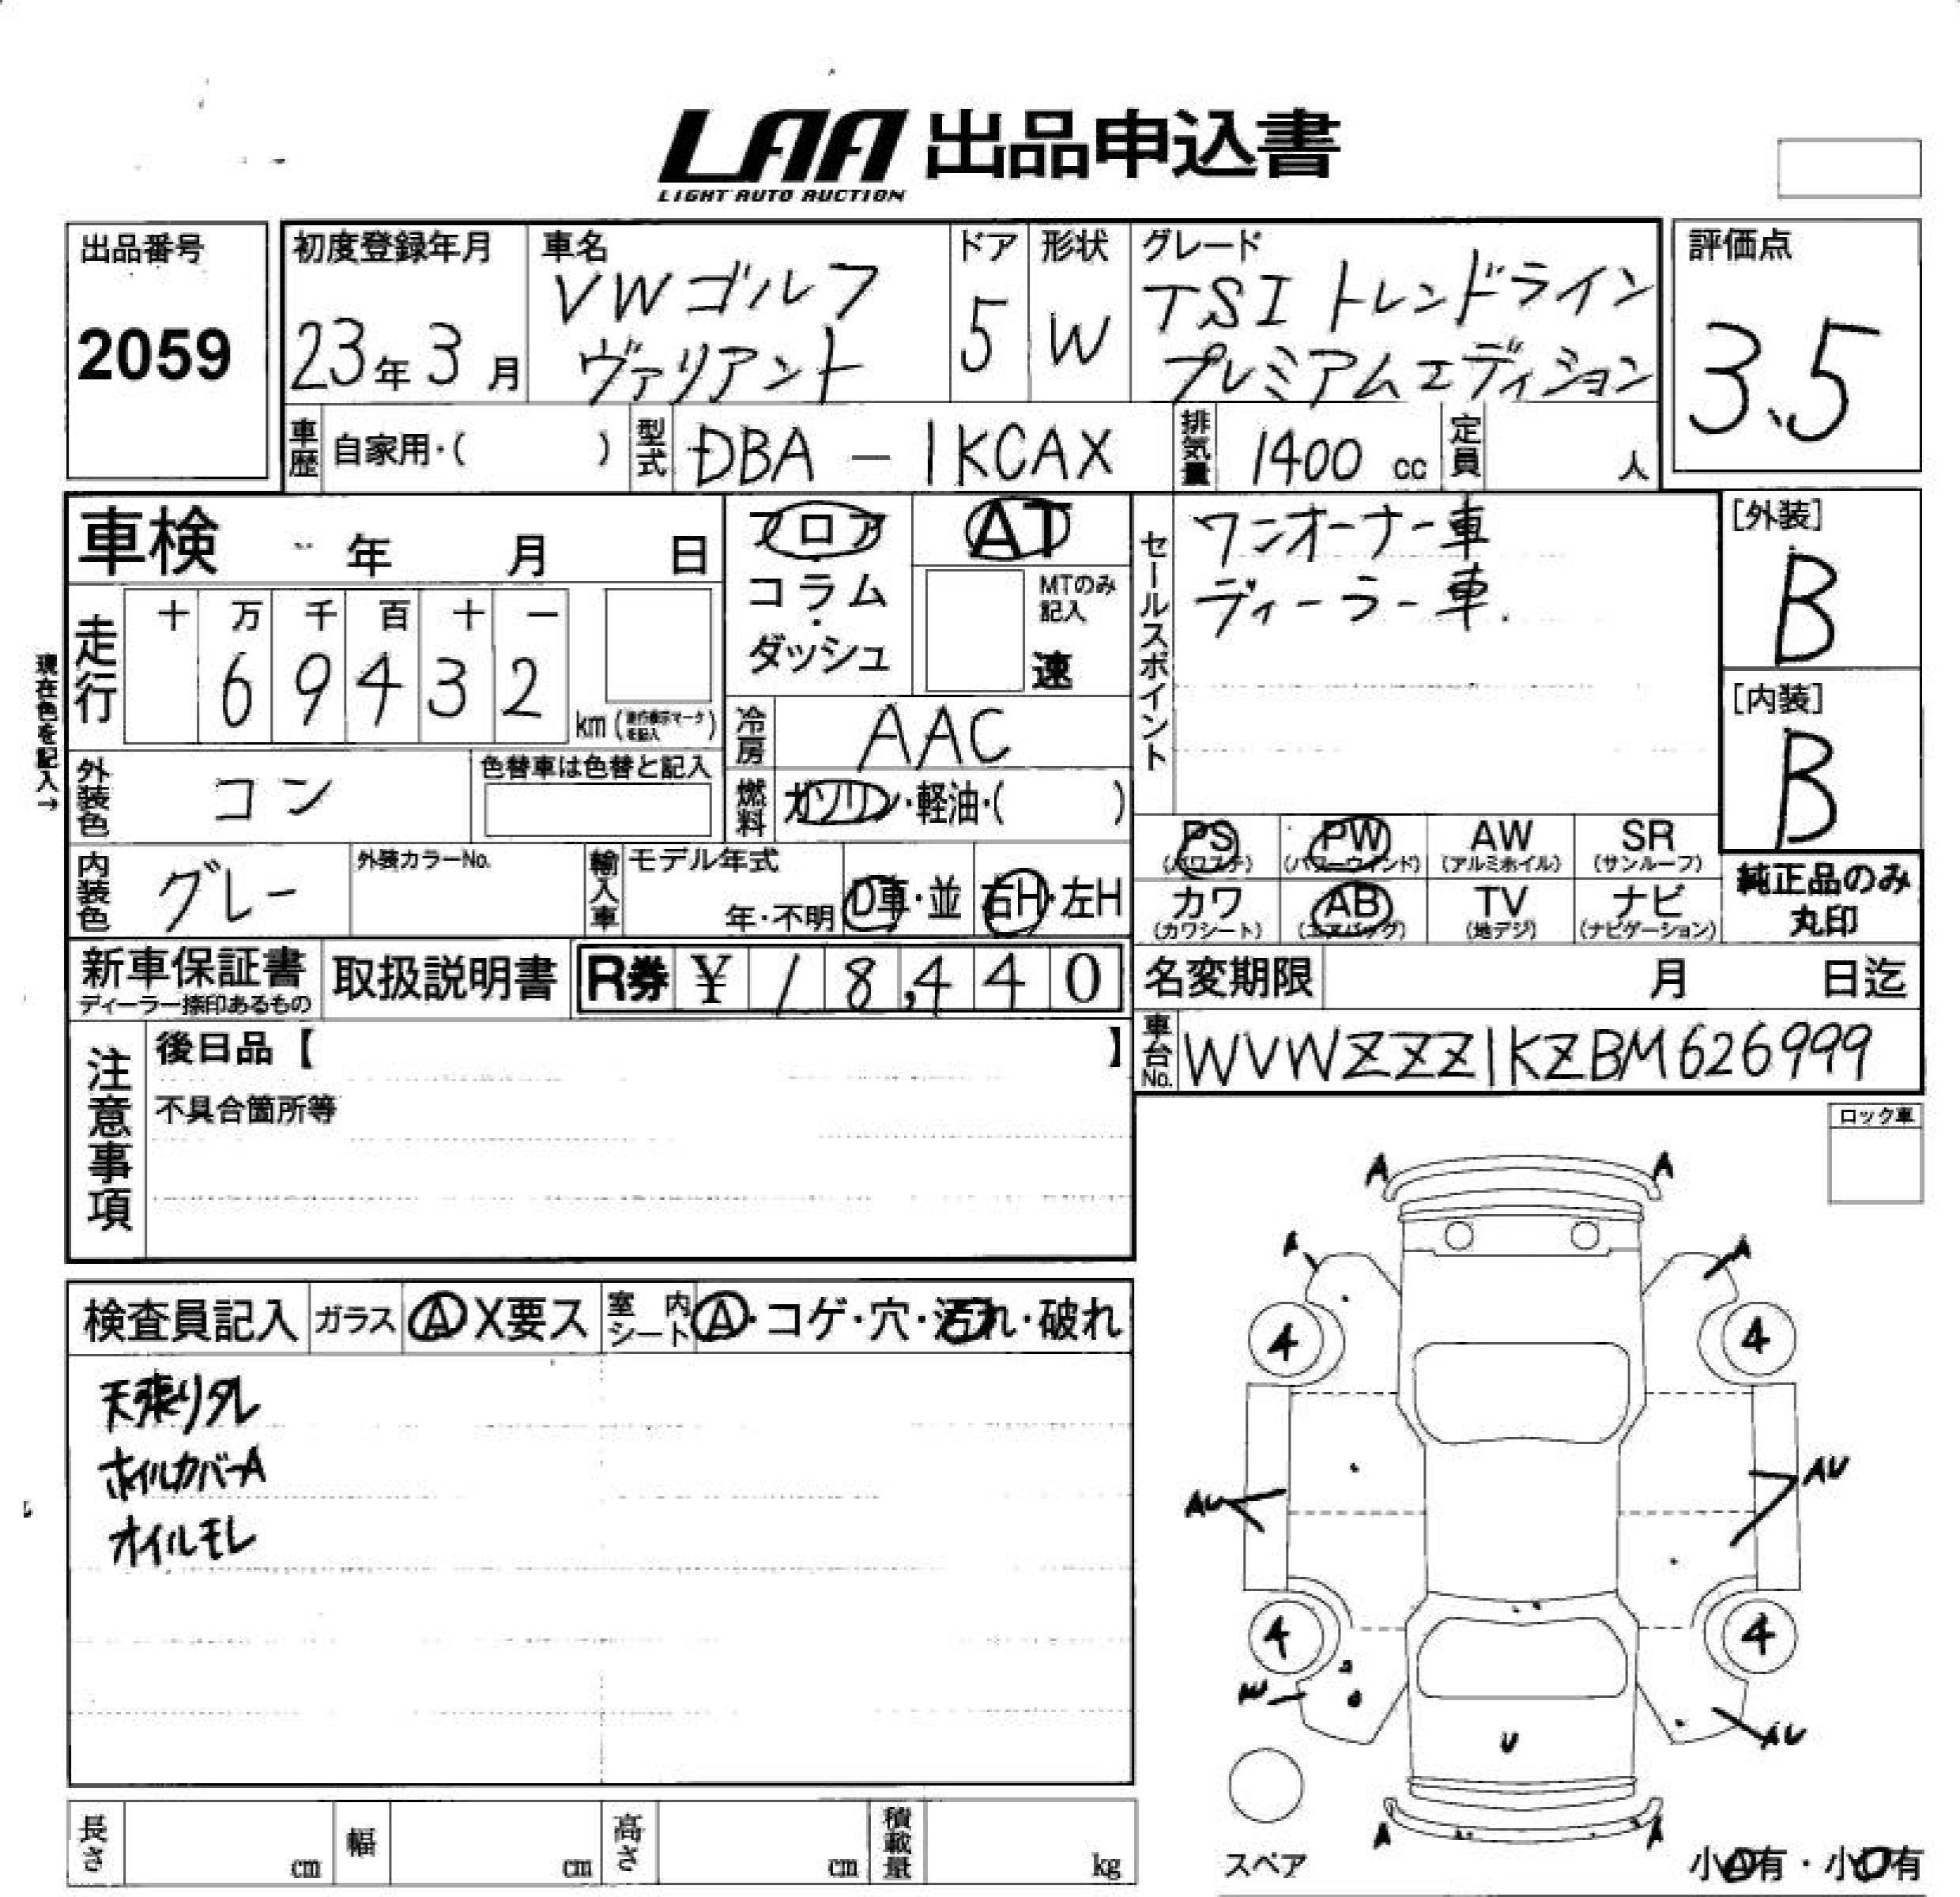 LAA 出品申込書
LIGHT AUTO AUCTION
出品番号
2059
初度登録年月
23年3月
車名
VWゴルフ
ヴァリアント
ドア
5
形状
W
グレード
TSI トレンドライン
プレミアムエディション
評価点
3.5
車歴 自家用・( )
型式 DBA-1KCAX
排気量 1400 cc
定員 人
車検 年 月 日
フロア
・
コラム
・
ダッシュ
AT
MTのみ
記入
速
セールスポイント
ワンオーナー車
ディーラー車.
[外装]
B
[内装]
B
現在色を記入→
走行
十 万 千 百 十 一
6 9 4 3 2
km
冷房 AAC
外装色 コン
色替車は色替と記入
燃料 ガソリン・軽油・( )
PS PW AW SR
(パワステ) (パワーウィンド) (アルミホイル) (サンルーフ)
内装色 グレー
外装カラーNo.
輸入車
モデル年式
年・不明
D車・並
右H・左H
カワ AB TV ナビ
(カワシート) (エアバッグ) (地デジ) (ナビゲーション)
純正品のみ
丸印
新車保証書
ディーラー捺印あるもの
取扱説明書
R券 ¥ 18,440
名変期限 月 日迄
車台No. WVWZZZ1KZBM626999
注意事項
後日品【 】
不具合箇所等
ロック車
検査員記入
ガラス A X要ス
室内シート A・コゲ・穴・汚れ・破れ
天張りタレ
ホイルカバーA
オイルモレ
A A
A A
4 4
AU AU
4 4
AU AU
U
A A
スペア
小A有・小U有
長さ cm
幅 cm
高さ cm
積載量 kg